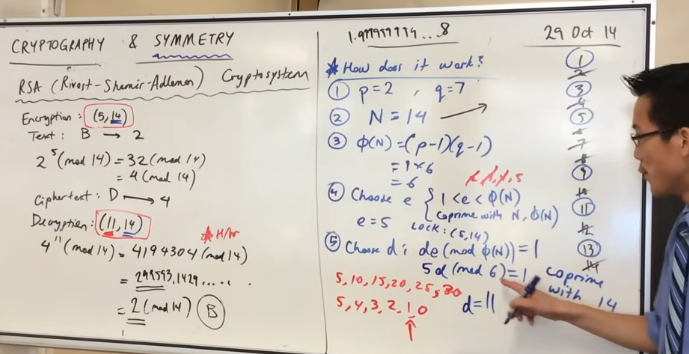 CRYPTOGRAPHY & SYMMETRY
RSA (Rivest-Shamir-Adleman) Cryptosystem
Encryption: (5,14)
Text: B → 2
2^5 (mod 14) = 32 (mod 14)
= 4 (mod 14)
Ciphertext: D → 4
Decryption: (11,14)
* H/W
4^11 (mod 14) = 4194304 (mod 14)
= 299593.1429......
= 2 (mod 14) B
1.999999999...8
* How does it work?
① p=2 , q=7
② N = 14
③ Φ(N)=(p-1)(q-1)
= 1×6
= 6
④ Choose e { 1<e<Φ(N)
coprime with N, Φ(N)
e=5
Lock: (5,14)
⑤ Choose d: de (mod Φ(N)) = 1
5d (mod 6) = 1
5,10,15,20,25,30
5,4,3,2,1,0
d=11
coprime
with 14
29 Oct 14
1
2
3
4
5
6
7
8
9
10
11
12
13
14